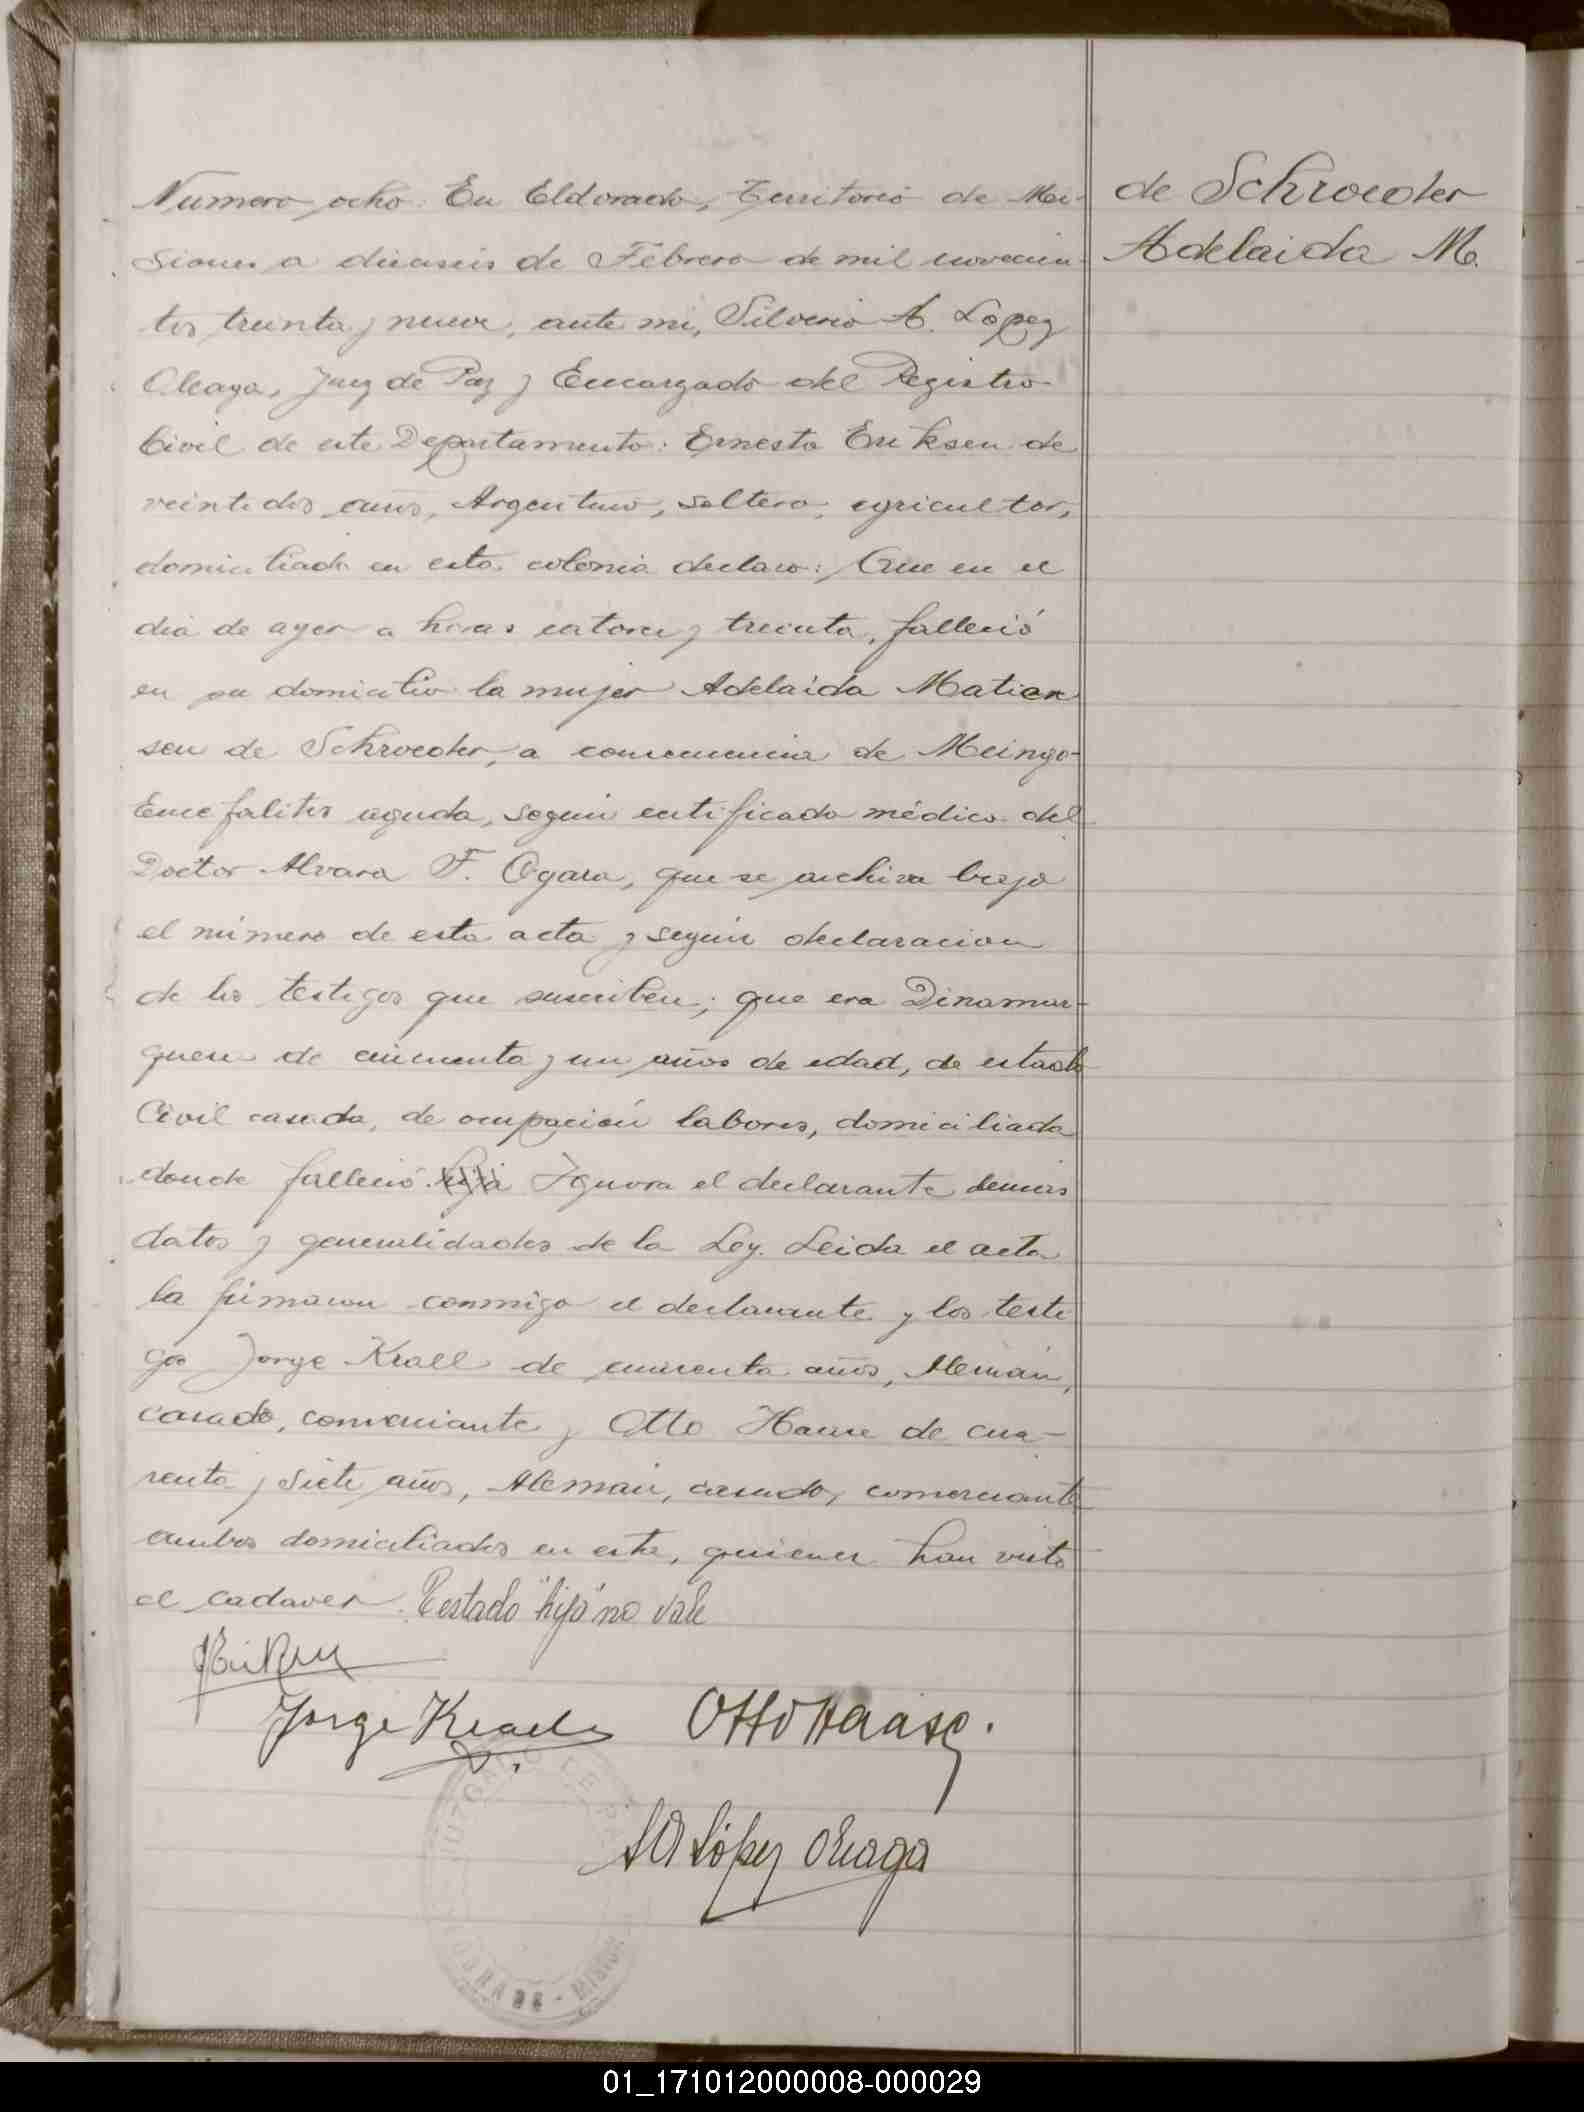 Numero ocho. En Eldorado, Territorio de Mi-
siones a dieciseis de Febrero de mil novecien-
tos treinta y nueve, ante mi, Silverio A. Lopez
Oleaga, Juez de Paz y Encargado del Registro
Civil de este Departamento: Ernesto Eriksen de
veintidos años, Argentino, soltero, agricultor,
domiciliado en esta colonia declaro: Que en el
dia de ayer a horas catorce y treinta, falleció
en su domicilio la mujer Adelaida Matien
sen de Schroeder, a consecuencia de Meingo-
Encefalitis aguda, según certificado médico del
Doctor Alvara F. Ogara, que se archiva bajo
el número de esta acta y según declaracion
de los testigos que suscriben; que era Dinamar-
quesa de cincuenta y un años de edad, de estado
Civil casada, de ocupación labores, domiciliada
donde falleció. hija Ignora el declarante demás
datos y generalidades de la Ley. Leida el acta
la firmaron conmigo el declarante y los testi
gos Jorge Krall de cuarenta años, Alemán,
casado, comerciante y Otto Hause de cua-
renta y siete años, Alemán, casado, comerciante
ambos domiciliados en esta, quienes han visto
el cadaver. Testado "hija" no vale
Jorge Kralls Otto Haase.
SA López Oleaga
JUZGADO DE PAZ
de Schroeder
Adelaida M.
01_171012000008-000029